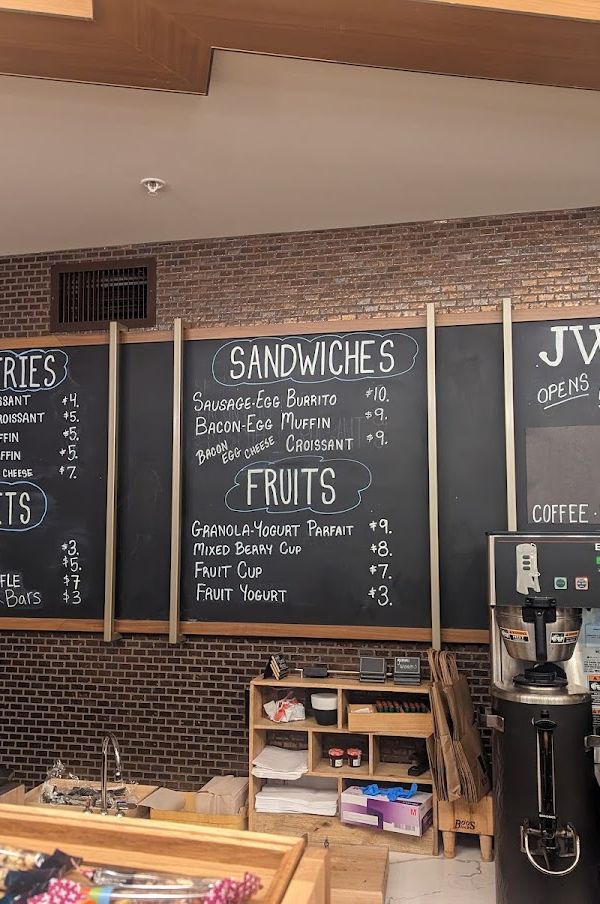 RIES
SSANT $4.
ROISSANT $5.
FFIN $5.
FFIN $5.
CHEESE $7.
ETS
$3.
$5.
FLE $7
Bars $3
SANDWICHES
SAUSAGE-EGG BURRITO $10.
BACON-EGG MUFFIN $9.
BACON EGG CHEESE CROISSANT $9.
FRUITS
GRANOLA-YOGURT PARFAIT $9.
MIXED BERRY CUP $8.
FRUIT CUP $7.
FRUIT YOGURT $3.
JW
OPENS
COFFEE ·
M